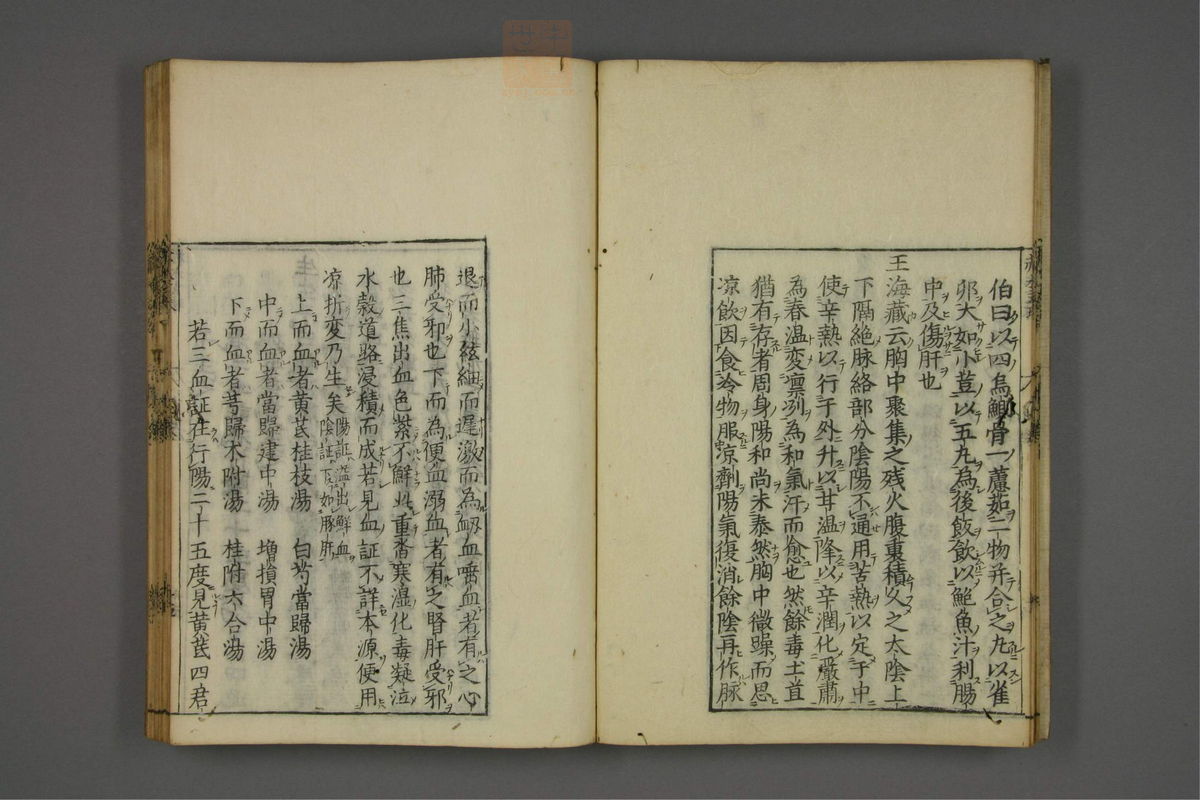 伯曰以四烏鰂骨一蘆茹二物幷合之丸以雀
卵大如小荳以五丸為後飯飲以鮑魚汁利腸
中及傷肝也
王海藏云胸中聚集之残火腹裏積久之太陰上
下隔絶脉絡部分陰陽不通用苦熱以定于中
使辛熱以行于外升以甘温降以辛潤化嚴肅
為春温変凛冽為和氣汗而愈也然餘毒土苴
猶有存者周身陽和尚未泰然胸中微躁而思
凉飲因食冷物服凉劑陽氣復消餘陰再作脉
退而小絃細而遲激而為衂血唾血者有之心
肺受邪也下而為便血溺血者有之腎肝受邪
也三焦出血色紫不鮮此重沓寒湿化毒凝泣
水穀道路浸積而成若見血証不詳本源便用
凉折変乃生矣陽証溢出鮮血陰証下如豚肝
上而血者黄芪桂枝湯　白芍當歸湯
中而血者當歸建中湯　増損胃中湯
下而血者芎歸木附湯　桂附六合湯
若三血証在行陽二十五度見黄芪四君